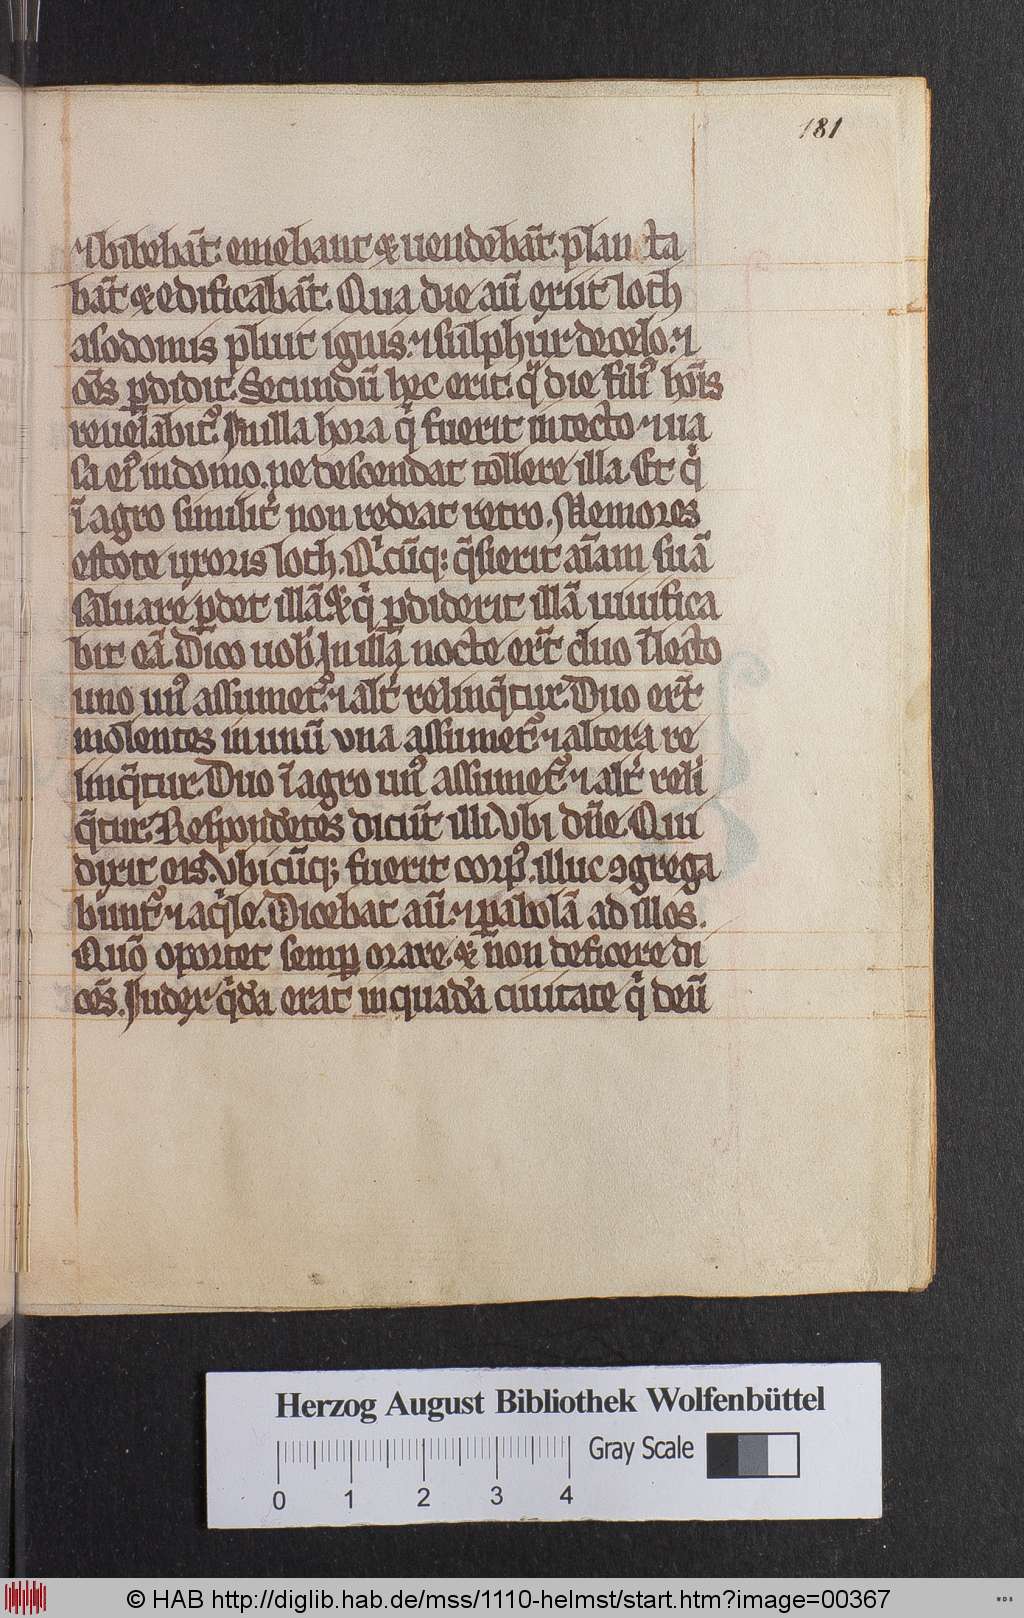 181
⁊ bibebāt. emebant & uendebāt. plan cta
bāt & edificabāt. Qua die aū exiit loth
asodomis pluit ignis. ⁊ sulphur decelo. ⁊
oēs ꝑdidit. Secundū hec erit. qͣ die filiꝰ hoīs
reuelabitꝰ. Inilla hora qͥ fuerit intecto ⁊ ua
sa eiꝰ indomo. ne descendat tollere illa. Et qͥ
ī agro similitͥ non redeat retro. Memores
estote uxoris loth. Qͥcūq; q̄sierit aīam suā
saluare ꝑdet illā. & qͥ ꝑdiderit illā uiuifica
bit eā. Dico uobͥ. Inillā nocte erūt duo ī lecto
uno unꝰ assumetᷣ. ⁊ altͥ relinq̄tur. Duo erūt
molentes inunū vna assumetᷣ. ⁊ altera re
linq̄tur. Duo ī agro unꝰ assumetᷣ. ⁊ altͥ reli
q̄tur. Respondētes dicūt illi Vbi dn̄e. Qui
dixit eis. Vbicūq; fuerit corpꝰ. illuc ꝯgrega
buntᷣ ⁊ aqͥle. Dicebat aū. ⁊ ꝑabolā ad illos.
Quō oportet semꝑ orare. & non deficere di
cēs. Iudex qͥdā erat inquadā ciuitate qͥ deū
Herzog August Bibliothek Wolfenbüttel
Gray Scale
0 1 2 3 4
© HAB http://diglib.hab.de/mss/1110-helmst/start.htm?image=00367